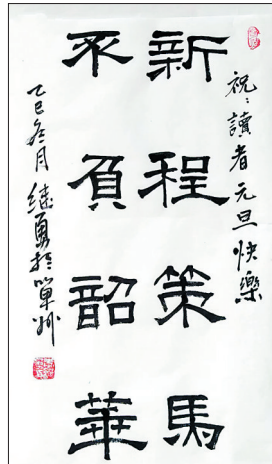 祝:讀者元旦快樂
新程策馬
不負韶華
乙巳冬月 继勇於單州